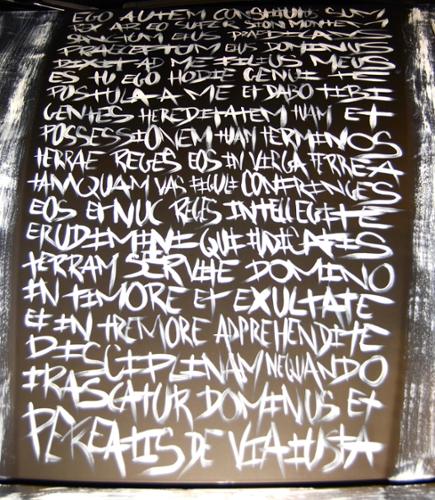 EGO AUTEM CONSTITUTUS SUM
REX AB EO SUPER SION MONTEM
SANCTUM EIUS PRAEDICANS
PRAECEPTUM EIUS DOMINUS
DIXIT AD ME FILIUS MEUS
ES TU EGO HODIE GENUI TE
POSTULA A ME ET DABO TIBI
GENTES HEREDITATEM TUAM ET
POSSESSIONEM TUAM TERMINOS
TERRAE REGES EOS IN VIRGA FERREA
TAMQUAM VAS FIGULI CONFRINGES
EOS ET NUC REGES INTELLEGITE
ERUDIMINI QUI IUDICATIS
TERRAM SERVITE DOMINO
IN TIMORE ET EXULTATE
EI IN TREMORE APPREHENDITE
DISCIPLINAM NEQUANDO
IRASCATUR DOMINUS ET
PEREATIS DE VIA IUSTA